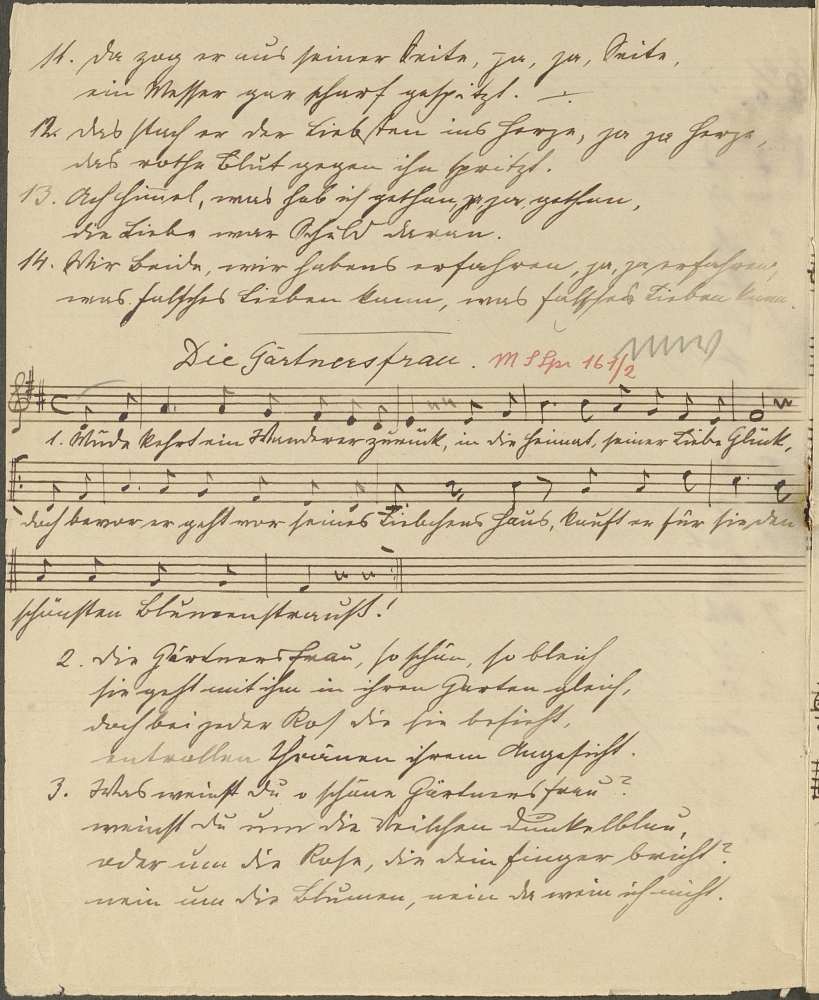 11. Da zog er aus seiner Seite, ja, ja, Seite,
ein Messer gar scharf gespitzt. ÷
12. Das stach er der Liebsten ins Herze, ja ja Herze,
das rothe Blut gegen ihn spritzt.
13. Ach Himel, was hab ich gethan, ja, ja, gethan,
die Liebe war Schuld daran.
14. Wir beide, wir habens erfahren, ja, ja erfahren,
was falsches Lieben kann, was falsches Lieben kann.
Die Gärtnersfrau. 161/2
1. Müde kehrt ein Wanderer zurück, in die Heimat, seiner Liebe Glück,
doch bevor er geht vor seines Liebchens Haus, kauft er für sie den
schönsten Blumenstrauß!
2. Die Gärtnersfrau, so schön, so bleich
sie geht mit ihm in ihren Garten gleich,
doch bei jeder Ros die sie besieht,
entrollen Thränen ihrem Angesicht.
3. Was weinst Du o schöne Gärtnersfrau?
weinst Du um die Veilchen dunkelblau,
oder um die Rose, die dein Finger bricht?
nein um die Blumen, nein da wein ich nicht.